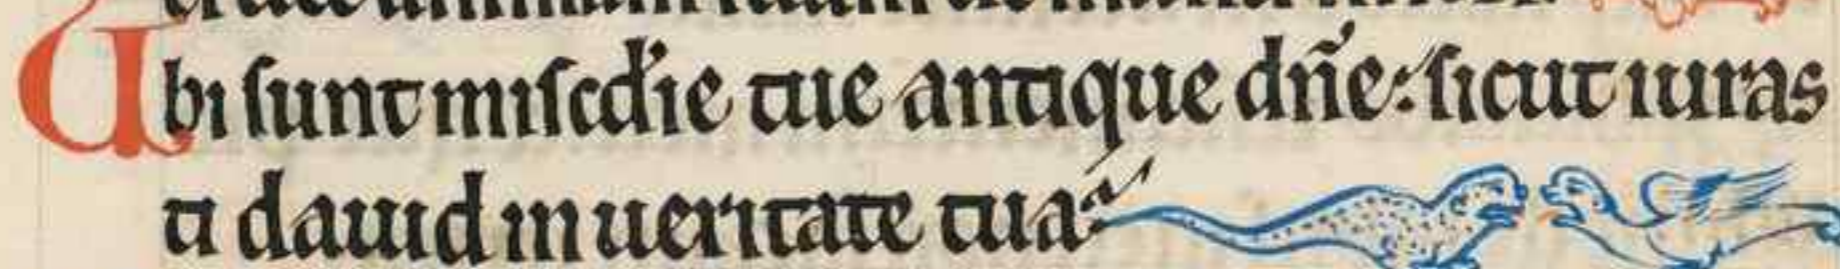 Ubi sunt miscd'ie tue antique dñe: sicut iuras
ti dauid in ueritate tua